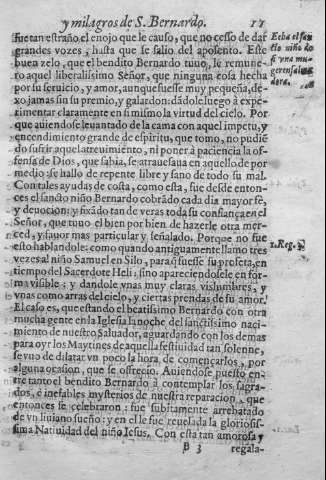 y milagros de S. Bernardo. 11
fue tan estraño el enojo que le causo, que no cesso de dar
grandes vozes, hasta que se salio del aposento. Este
buen zelo, que el bendito Bernardo tuuo, le remune-
ro aquel liberalissimo Señor, que ninguna cosa hecha
por su seruicio, y amor, aunque fuesse muy pequeña, de-
xo jamas sin su premio, y galardon: dãdole luego à expe-
rimentar claramente en si mismo la virtud del cielo. Por
que auiendose leuantado de la cama con aquel impetu, y
encendimiento grande de espiritu, que tomo, no pudiẽ
do sufrir aquel atreuimiento, ni poner à paciencia la of-
fensa de Dios, que sabia, se atrauessaua en aquello de por
medio: se hallo de repente libre y sano de todo su mal.
Con tales ayudas de costa, como esta, fue desde enton-
ces el sancto niño Bernardo cobrãdo cada dia mayor fe,
y deuocion: y fixãdo tan de veras toda su confiança en el
Señor, que tuuo el bien por bien de hazerle otra mer-
ced, y fauor mas particular y señalado. Porque no fue
esto hablandole: como quando antiguamente llamo tres
vezes al niño Samuel en Silo, para q̃ fuesse su profeta, en
tiempo del Sacerdote Heli: sino apareciendosele en for-
ma visible: y dandole vnas muy claras vislumbres, y
vnas como arras del cielo, y ciertas prendas de su amor.
El caso es, que estando el beatissimo Bernardo con otra
mucha gente en la Iglesia la noche del sanctissimo naci-
miento de nuestro Saluador, aguardando con los demas
para oyr los Maytines de aquella festiuidad tan solenne,
se vuo de dilatar vn poco la hora de començarlos, por
alguna ocasion, que se offrecio. Auiendose puesto en-
tre tanto el bendito Bernardo à contemplar los sagra-
dos, è inefables mysterios de nuestra reparacion, que
entonces se celebraron: fue subitamente arrebatado
de vn liuiano sueño: y en el le fue reuelada la gloriosis-
sima Natiuidad del niño Iesus. Con esta tan amorosa y
B 3 regala-
Echa el san
cto niño de
si vna mu-
ger
dora.
1. Reg. 3.